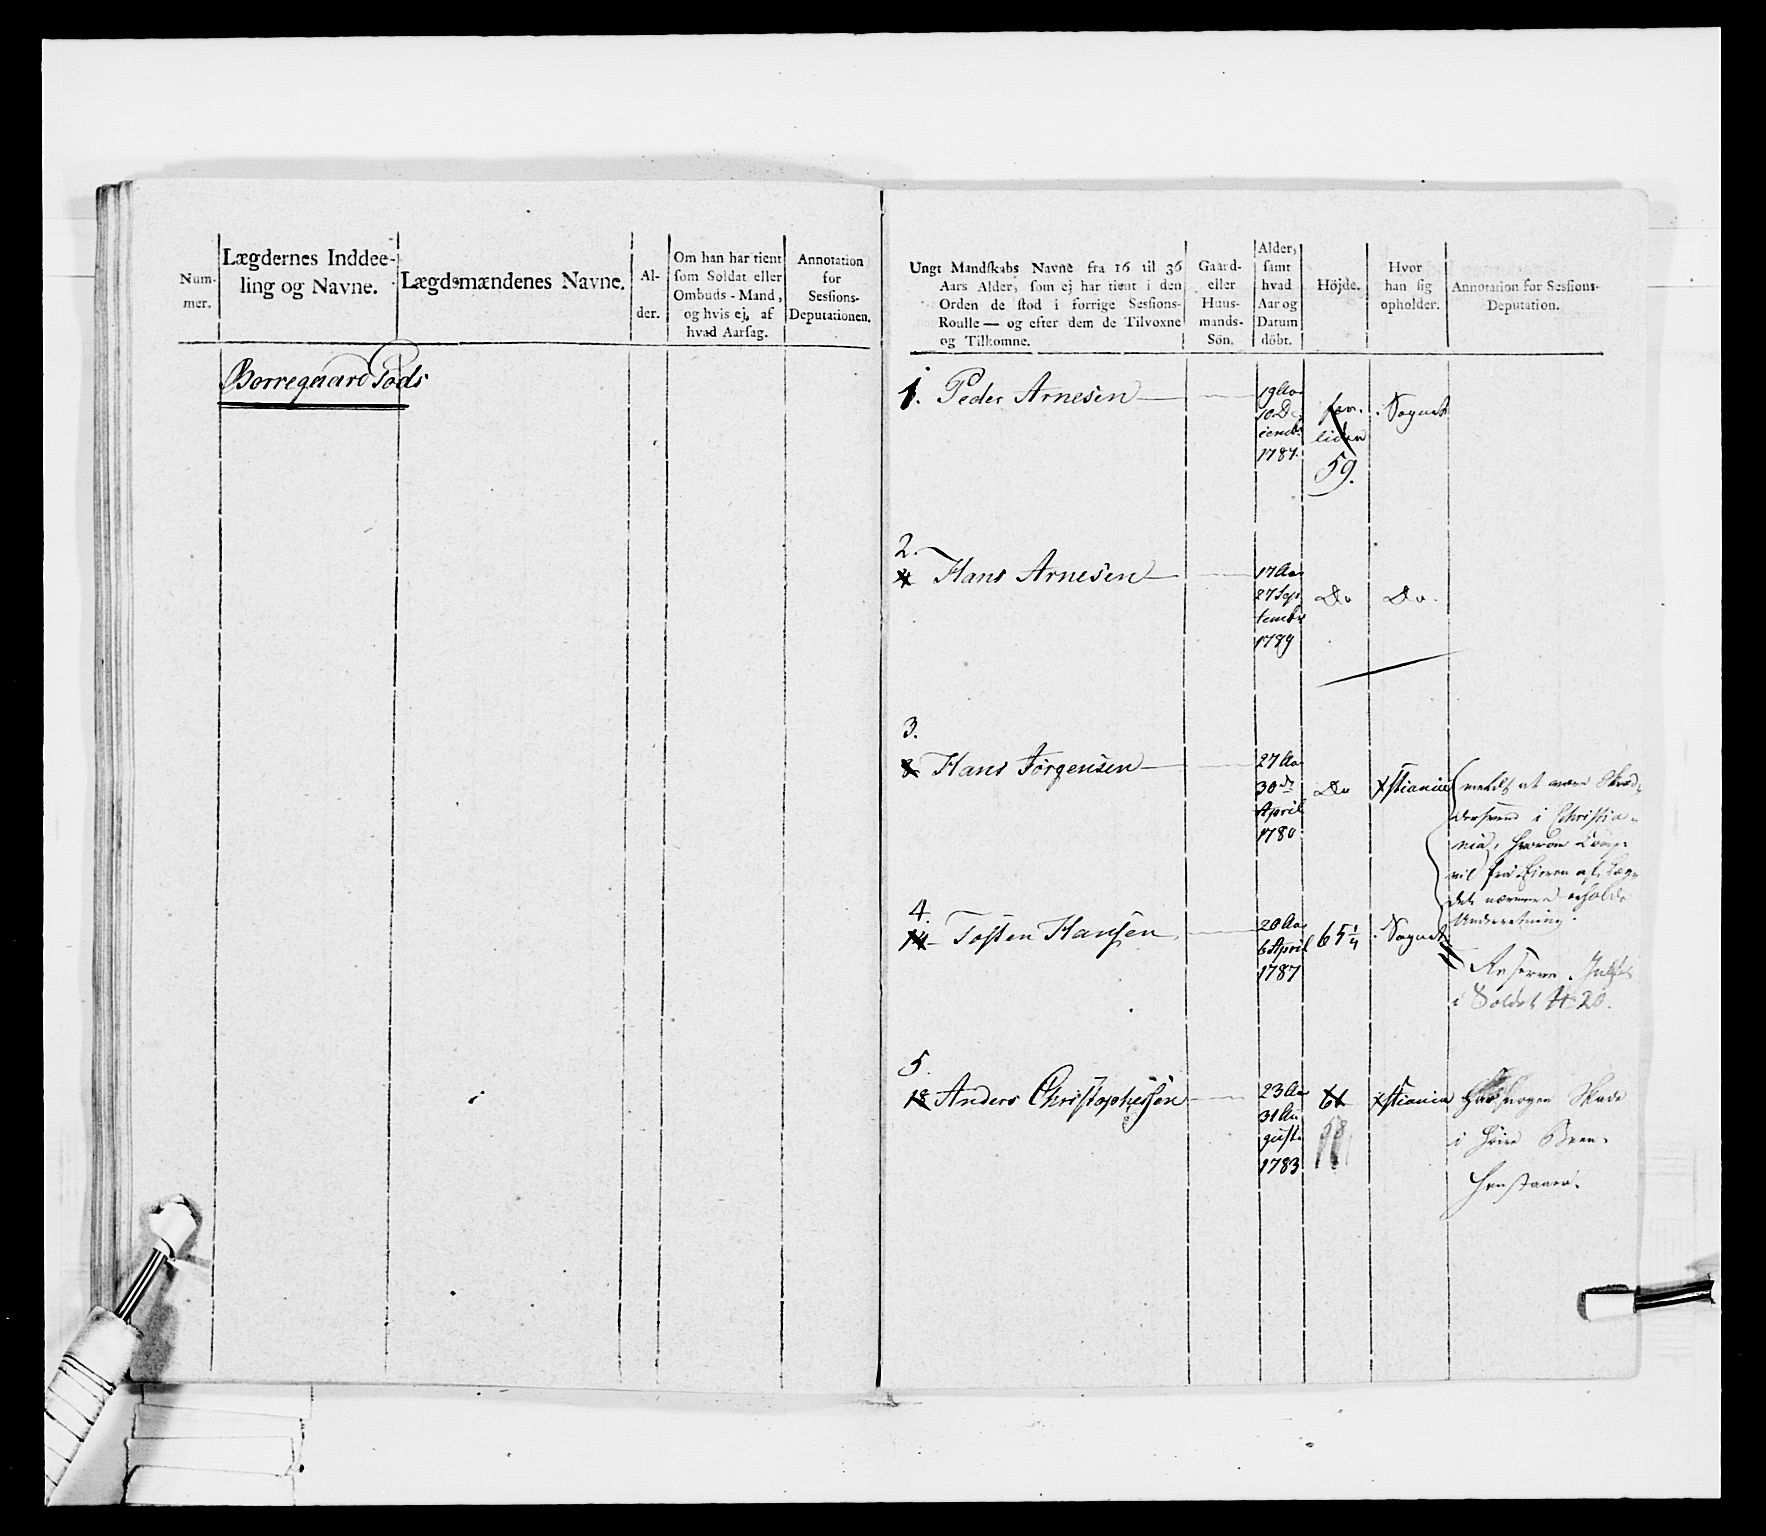 Num-
mer.
Lægdernes Inddee-
ling og Navne.
Lægdsmændenes Navne.
Al-
der.
Om han har tient
som Soldat eller
Ombuds-Mand,
og hvis ej, af
hvad Aarsag.
Annotation
for
Sessions-
Deputationen.
Borregaard Gods
Ungt Mandskabs Navne fra 16 til 36
Aars Alder, som ej har tient i den
Orden de stod i forrige Sessions-
Roulle — og efter dem de Tilvoxne
og Tilkomne.
Gaard-
eller
Huus-
mands-
Søn.
Alder,
samt
hvad
Aar og
Datum
döbt.
Höjde.
Hvor
han sig
opholder.
Annotation for Sessions-
Deputation.
1. Peder Arnesen
19 Aar
10 De
cembr
1787.
for
liden
59.
i Sognet
2.
4 Hans Arnesen
17 Aar
27 Sep
tembr
1789
Do
Do.
3.
8 Hans Jørgensen
27 Aar
30de
April
1780
Do
Xstiania
meldt at være Skræd-
dersvend i Christia-
nia, hvorom
Underretning.
4.
14 Tosten Hansen
20 Aar
6 April
1787
65 1/4
i Sognet
Reserve
i Soldet No 20.
5.
18 Anders Christophersen
23 Aar
31 Au
gusti
1783
61
Xstiania
Har nogen Skade
i høire Been.